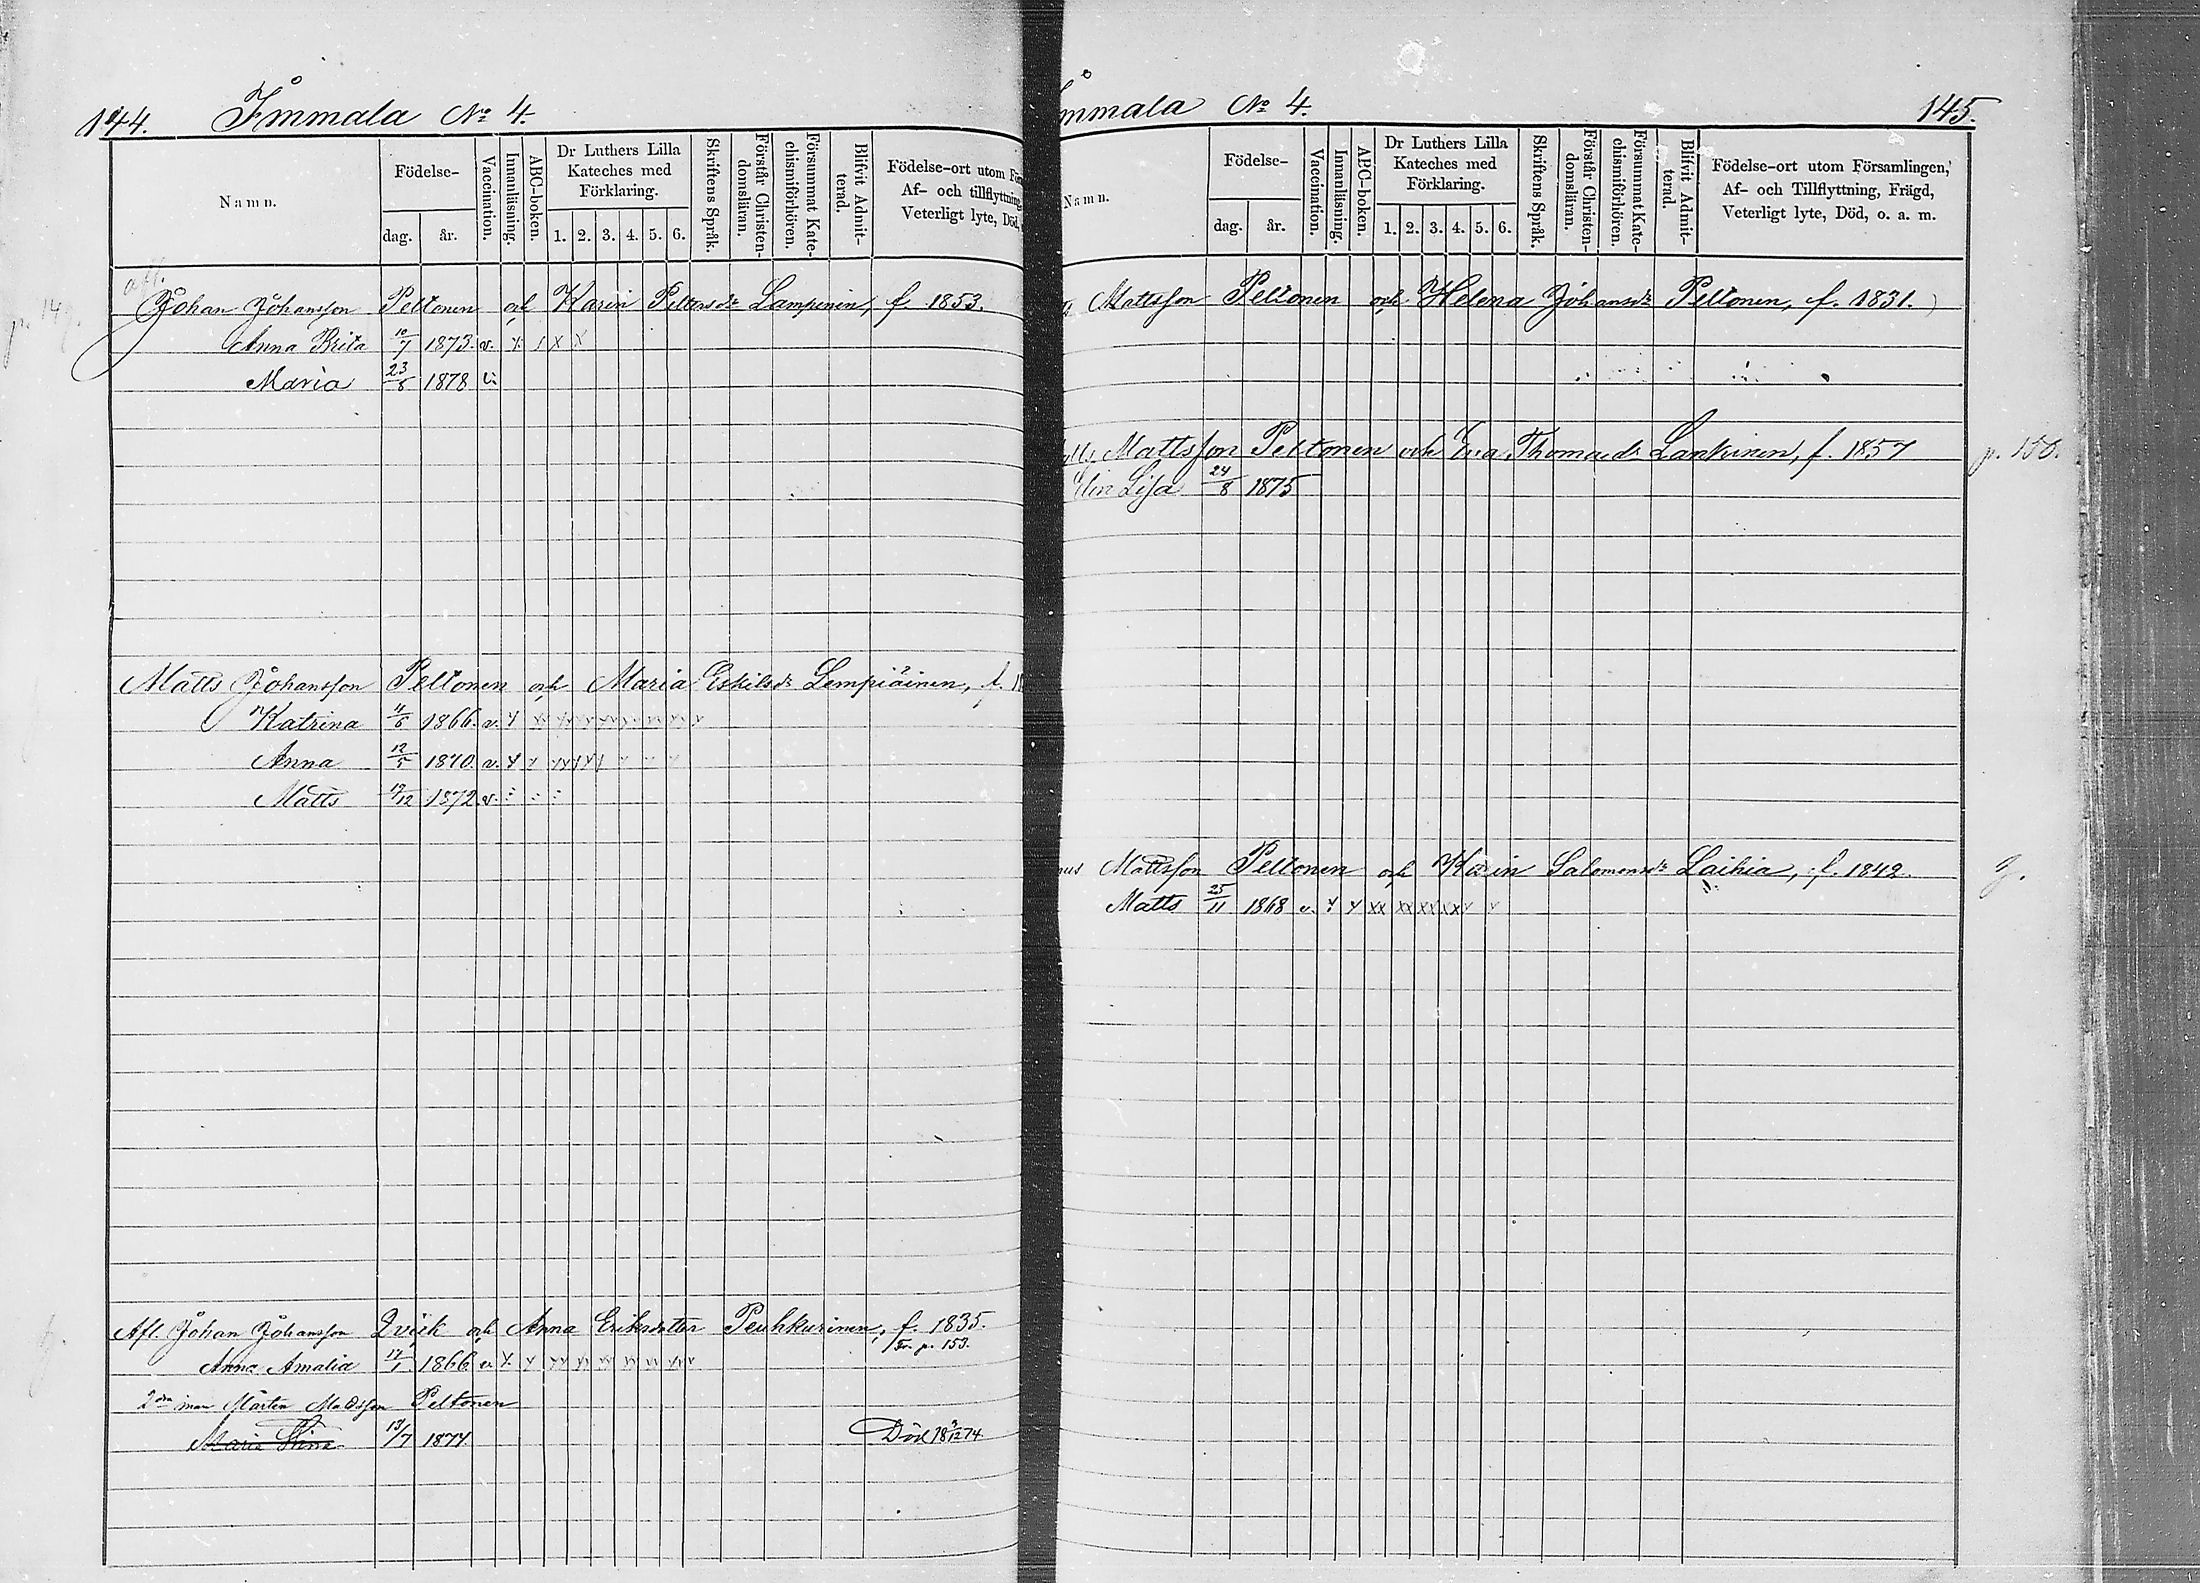 144. Immala No 4.
Namn.
Födelse-
dag.
år.
Vaccination.
Innanläsning.
ABC-boken.
Dr Luthers Lilla
Kateches med
Förklaring.
1. 2. 3. 4. 5. 6.
Skriftens Språk.
Förstår Christen-
domsläran.
Försummat Kate-
chismiförhören.
Blifvit Admit-
terad.
Födelse-ort utom För
Af- och tillflyttning
Veterligt lyte, Död,
afl.
Johan Johansson Peltonen och Karin Pettersdr Lampinen, f. 1853.
Anna Brita 10/7 1873. v. x x x
Maria 23/8 1878 v.
Matts Johansson Peltonen och Maria Eskilsdr Lempiäinen, f. 1
Katrina 4/6 1866. v.
Anna 12/5 1870. v.
Matts 19/12 1872. v.
Afl. Johan Johansson Qvick och Anna Eriksdotter Peuhkurinen, f. 1835.
Fr. p. 153.
Anna Amalia 17/1 1866. v.
2dra man Mårten Mattsson Peltonen
Maria Stina 13/7 1874. Död 18 9/12 74
mmala No 4. 145.
Namn.
Födelse-
dag.
år.
Vaccination.
Innanläsning.
ABC-boken.
Dr Luthers Lilla
Kateches med
Förklaring.
1. 2. 3. 4. 5. 6.
Skriftens Språk.
Förstår Christen-
domsläran.
Försummat Kate-
chismiförhören.
Blifvit Admit-
terad.
Födelse-ort utom Församlingen,
Af- och Tillflyttning, Frägd,
Veterligt lyte, Död, o. a. m.
Mattsson Peltonen och Helena Johansdr Peltonen, f. 1831.
Mattsson Peltonen och Eva Thomasdr Lankinen, f. 1857 p. 150.
Elin Lisa 24/8 1875
Mattsson Peltonen och Karin Salomonsdr Laihia, f. 1842.
Matts 25/11 1868 v.